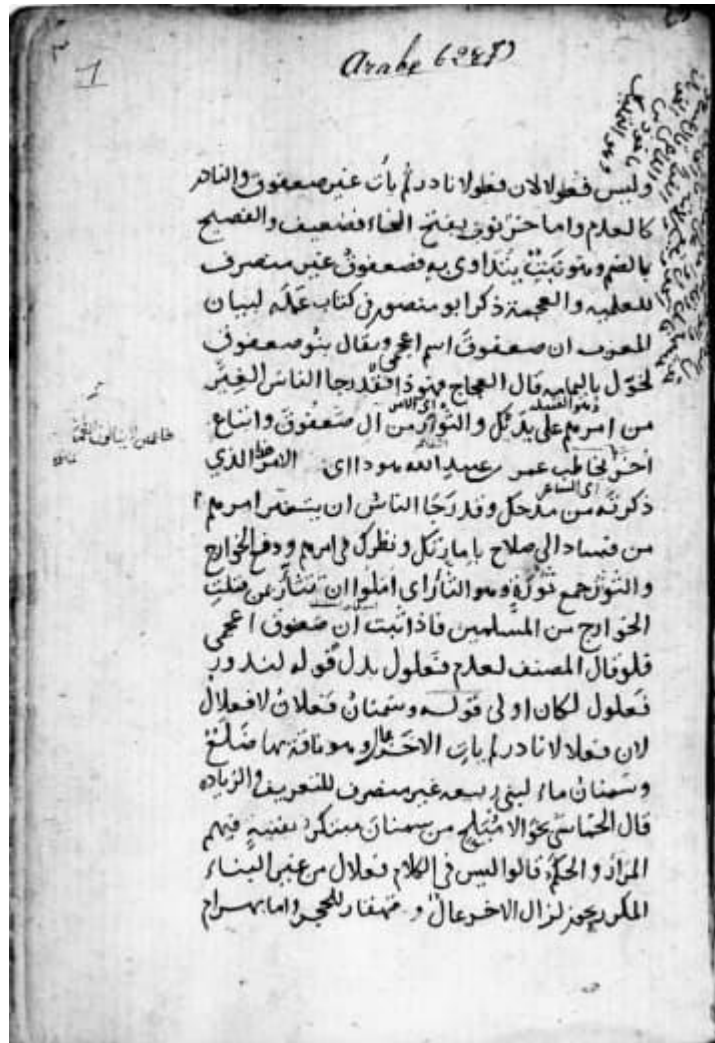 Arabe 6287
1
وليس فعلولا لان فعلولا نادر لم يأت غير صعفوق والنادر
كالعدم واما خرنوب بفتح الخاء فضعيف والفصيح
بالضم وهو نبت يتداوى به فصعفوق غير منصرف
للعلمية والعجمة ذكر ابو منصور في كتاب عمله لبيان
المعرب ان صعفوق اسم اعجمي ويقال بنو صعفوق
لخول باليمامة قال العجاج فهو ذا فقد رجا الناس الغير
من امرهم على يديك والثؤر من آل صعفوق واتباع
اخر يخاطب عمر بن عبيد الله هو ذا اى الامر الذي
اى الشاعر
ذكرته من مدحك وقد رجا الناس ان يتغير امرهم
من فساد الى صلاح بامارتك ونظرك في امرهم ودفع الخوارج
والثؤر جمع ثؤرة وهو الثأر اى املوا ان تثأر بمن قتلت
الخوارج من المسلمين فاذا ثبت ان صعفوق اعجمى
فلو قال المصنف لعدم فعلول بدل قوله لندور
فعلول لكان اولى قوله وسمنان فعلان لا فعلال
لان فعلالا نادر لم يأت الا خزعال وهو ناقة بها ضلع
وسمنان ماء لبنى ربيعه غير منصرف للتعريف والزياده
قال الحماسى نحو الاميلح من سمنان مبتكرا بفتية فيهم
المرار والحكم قالوا ليس في الكلام فعلال من غير البناء
المكرر نحو زلزال الا خزعال و قهقار للحجر واما بهرام